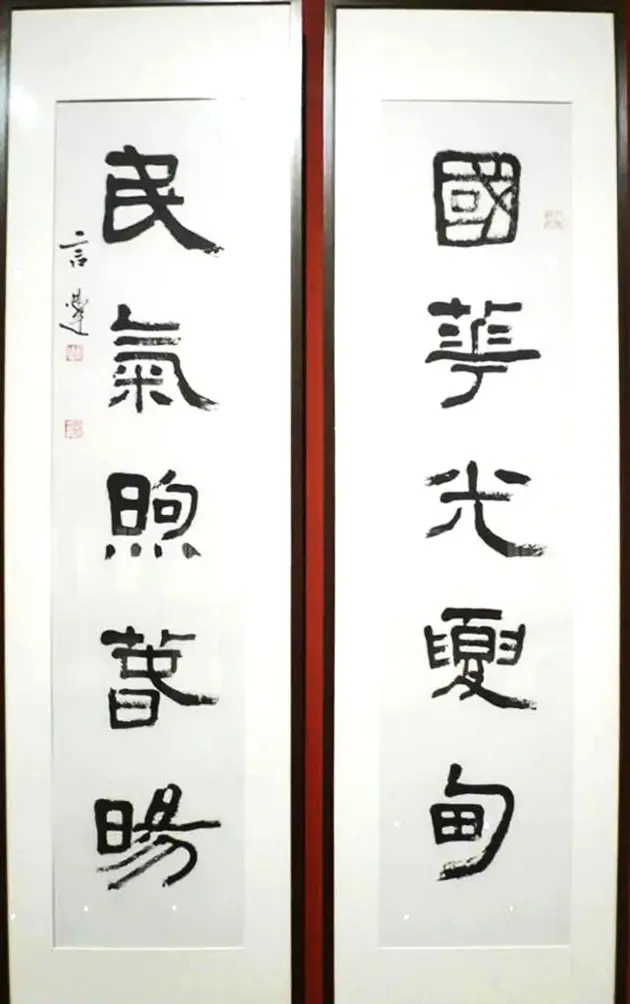 國華光夏甸
民氣煦萅暘
言恭達